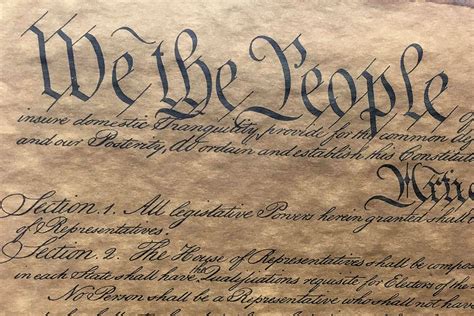 We the People
insure domestic Tranquility, provide for the common
and our Posterity, do ordain and establish this Constitu
Artic
Section. 1. All legislative Powers herein granted shall
of Representatives.
Section. 2. The House of Representatives shall be compos
in each State shall have the Qualifications requisite for Electors of the
No Person shall be a Representative who shall not have